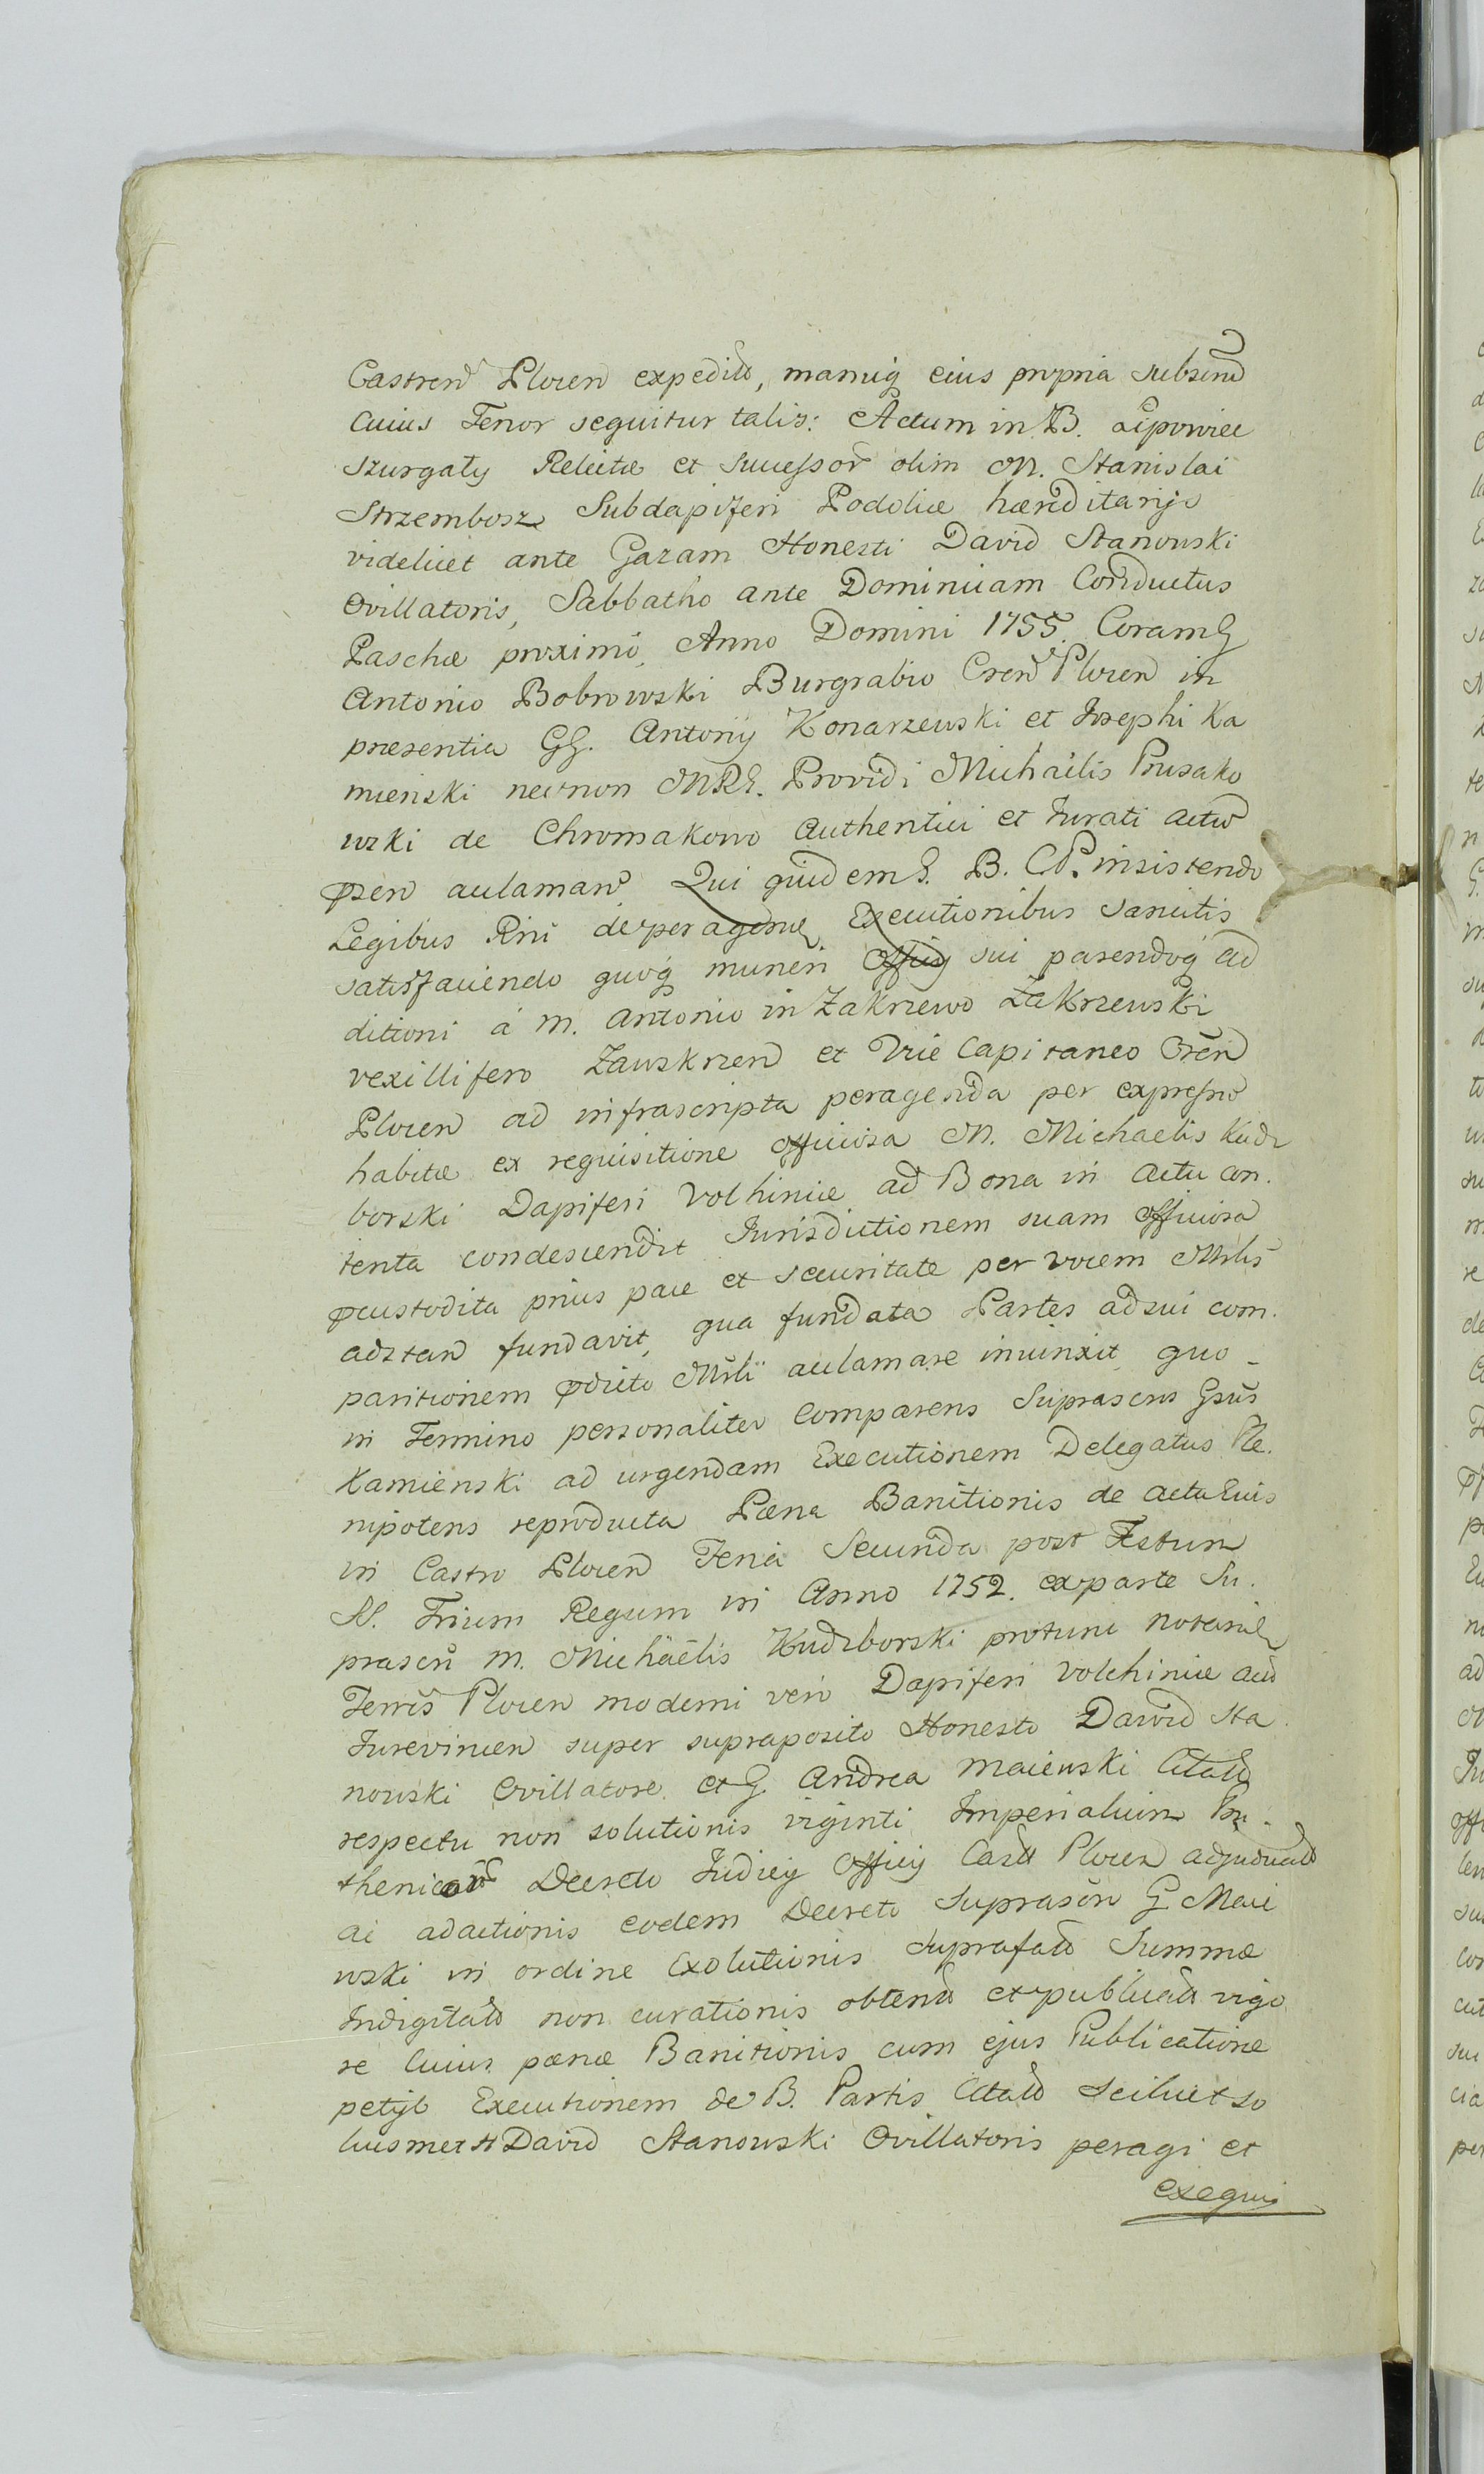 Castren Plocen expedito, manuiq eius propria subscrind
Cuius Tenor sequitur talis: Actum in B. Lipowiec
Szurgaly Relictæ et Successor olim M. Stanislai
Strzembosz Subdapiferi Podoliæ hæreditarijs
videlicet ante Gazam Honesti David Stanowski
Ovillatoris, Sabbatho ante Dominicam Conductus
Paschæ proximo, Anno Domini 1755. Coram G
Antonio Bobrowski Burgrabio Cren Plocen in
præsentia GG. Antonij Konarzewski et Josephi Ka
mienski necnon MRG. Providi Michaelis Prusako
wski de Chromakowo Authentici et Jurati actu
pnsen aclaman Qui quidem G. B. C.P. insistendo
Legibus Rni de peragend Executionibus sancitis
satisfaciendo quoq muneri officij sui parendoq ad
ditioni a M. Antonio in Zakrzewo Zakrzewski
vexillifero Zawskrzen et Vice Capitaneo Cren
Plocen ad infrascripta peragenda per expresso
habitæ ex requisitione officiosa M. Michaelis Kudz
borski Dapiferi Volhiniæ ad Bona in Actu con.
tenta condescendit Jurisdictionem suam officiosa
pcustodita prius pace et securitate per vocem Mrlis
adstan fundavit, qua fundata Partes ad sui com.
paritionem pdicto Mrli aclamare inuinxit quo
in Termino personaliter Comparens Suprascrus Gsus
Kamienski ad urgendam Executionem Delegatus Ple.
nipotens reproducta Pæna Banitionis de actu Eius
in Castro Plocen Feria Secunda post Festum
SS. Trium Regum in Anno 1752. ex parte Su.
prascri M. Michaelis Kudzborski protunc Notarij
Terres Plocen moderni vero Dapiferi Volchiniæ aus
Jurevincen super supraposito Honesto David Sta
nowski Ovillatore et G. Andrea Maiewski Citatis
respectu non solutionis viginti Imperialium Ru.
thenicor Decreto Judicij Officij Castr Plocen adjudicat
ac adactionis eodem Decreto Suprascri G Maie
wski in ordine Exolutionis Suprafatæ Summæ
Indigitatæ non curationis obtent et publicat vigo
re Cuius pænæ Banitionis cum ejus Publicatione
petijt Executionem de B. Partis Citatæ Scilicet so
liusmet H David Stanowski Ovillatoris peragi et
exequi